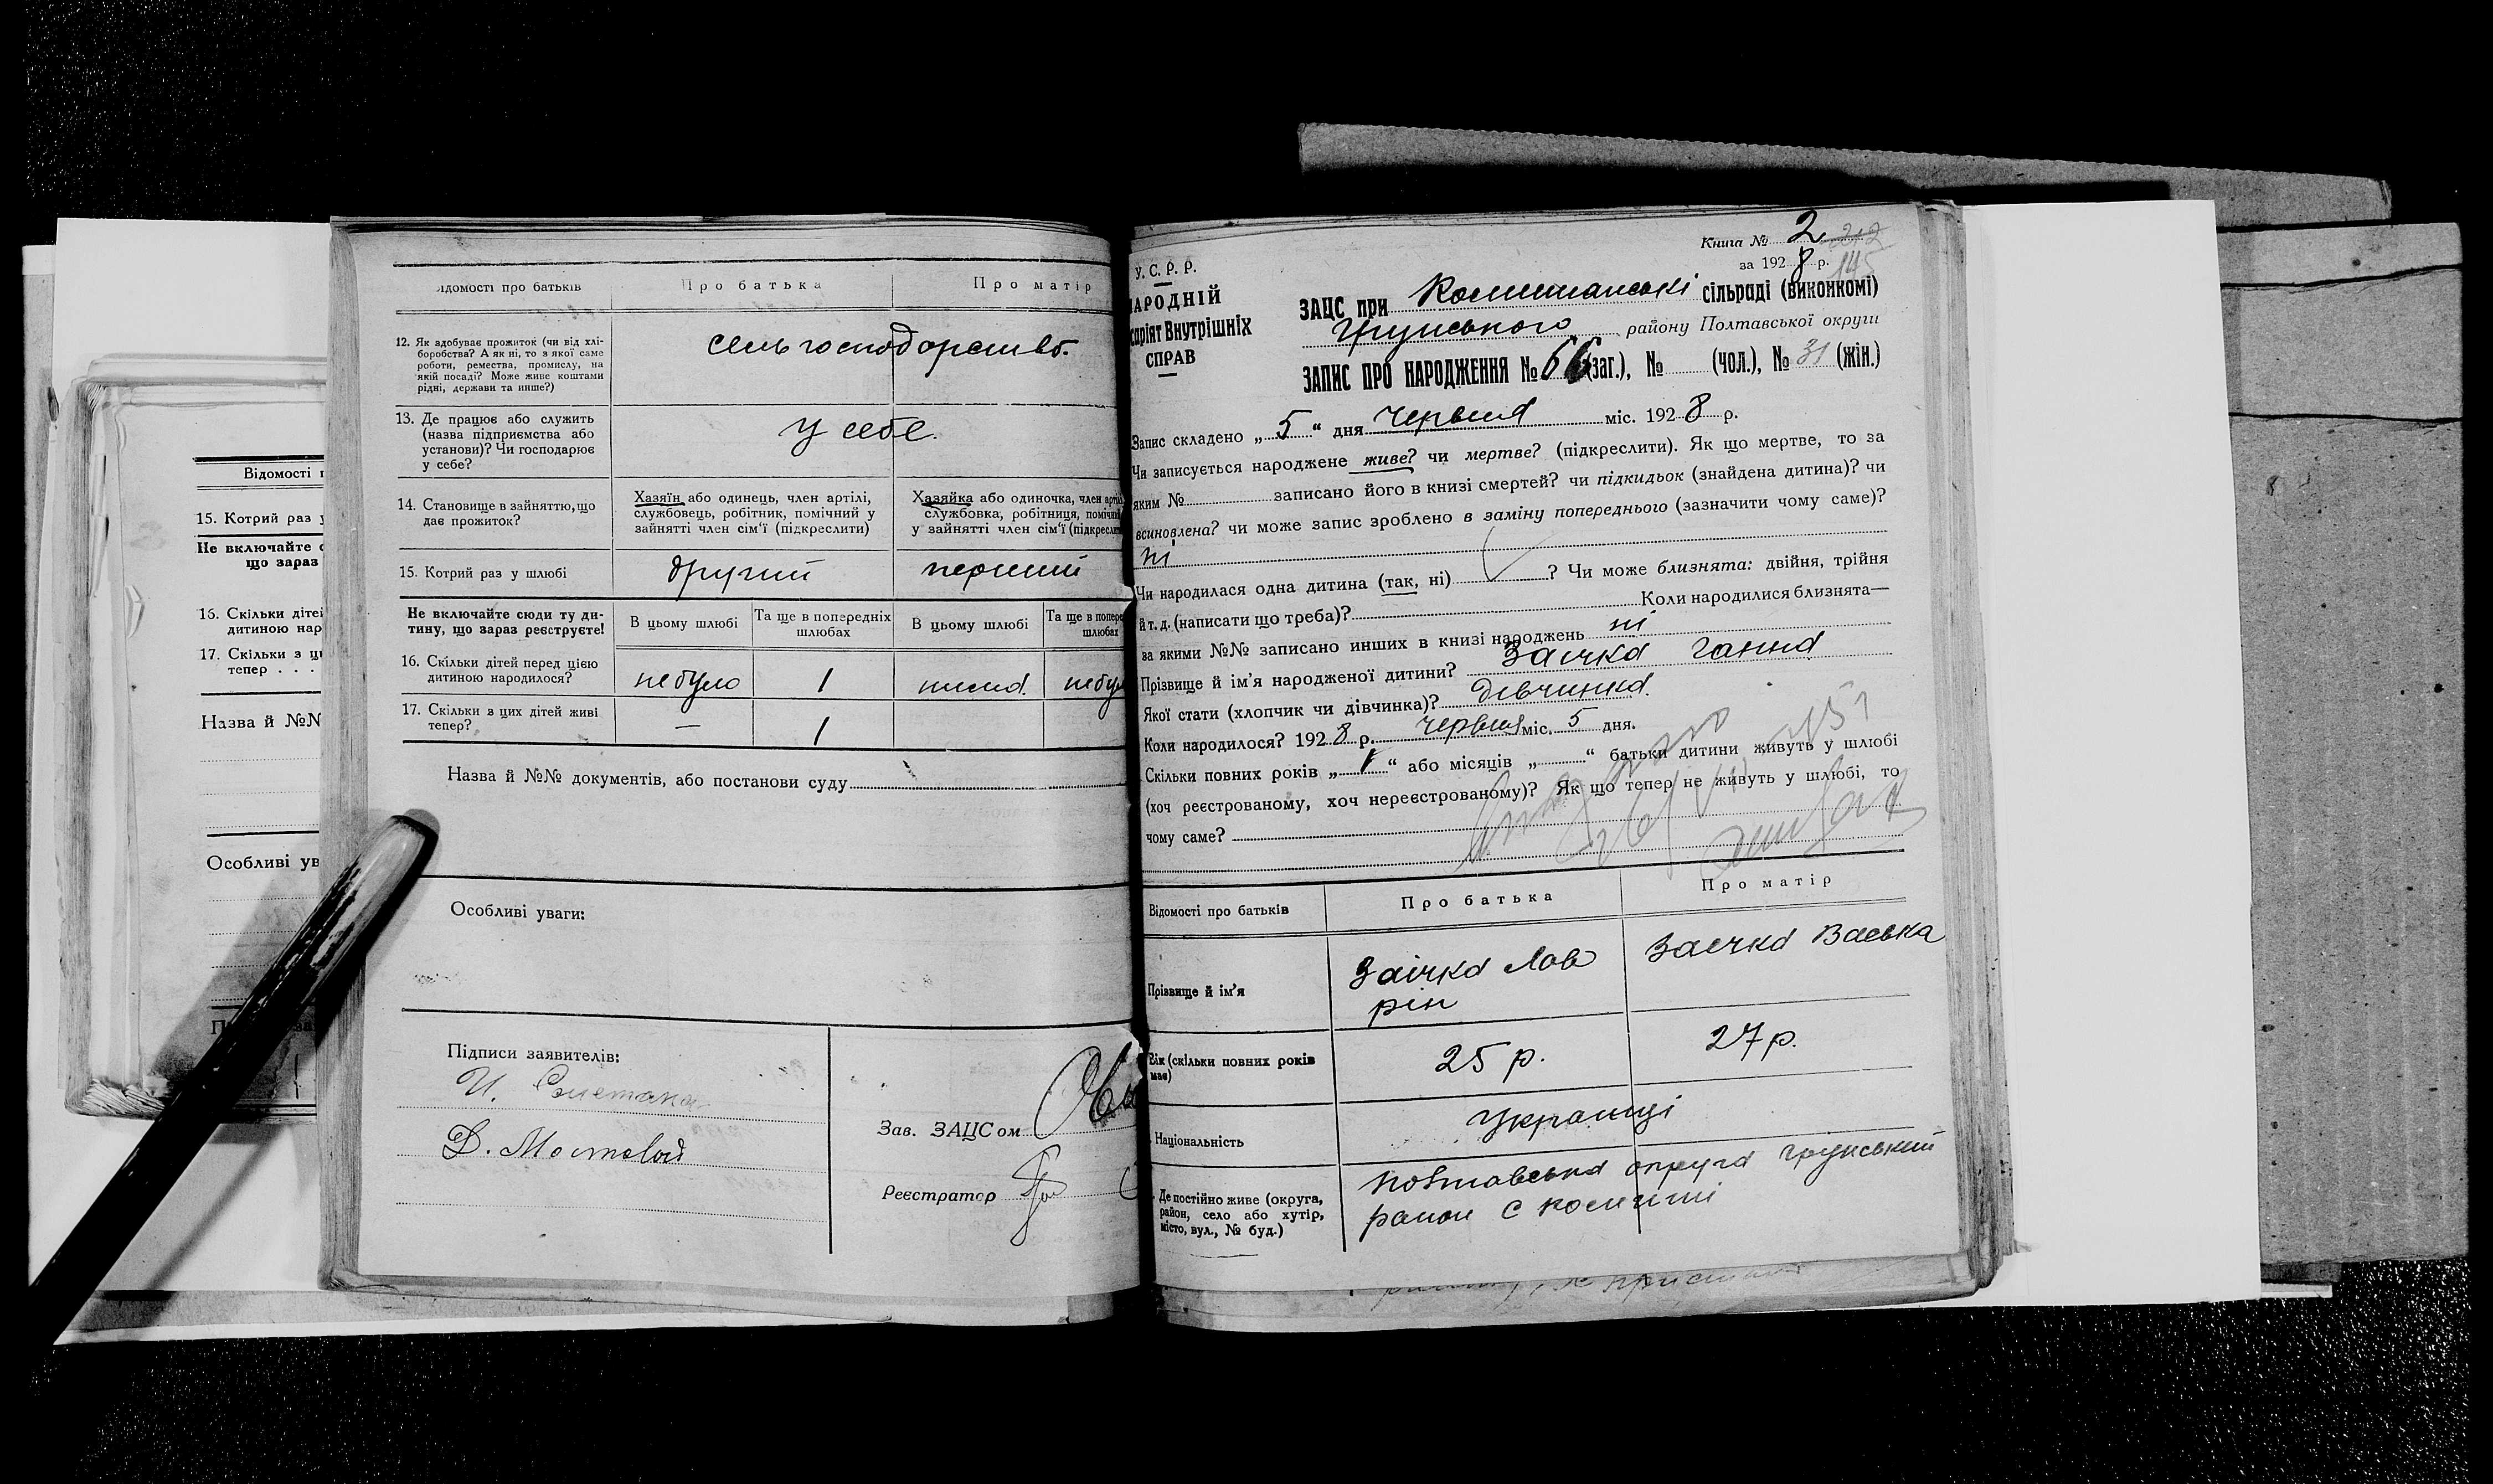 Відомості п
15. Котрий раз у
Не включайте с
що зараз
16. Скільки дітей
дитиною нар
17. Скільки з ци
тепер . . .
Назва й №№
Особливі ув
ідомості про батьків
Про батька
Про матір
12. Як здобуває прожиток (чи від хлі-
боробства? А як ні, то з якої саме
роботи, ремества, промислу, на
якій посаді? Може живе коштами
рідні, держави та инше?)
сельгосподарство.
13. Де працює або служить
(назва підприємства або
установи)? Чи господарює
у себе?
у себе.
14. Становище в зайняттю, що
дає прожиток?
Хазяїн або одинець, член артілі,
службовець, робітник, помічний у
зайнятті член сім'ї (підкреслити)
Хазяйка або одиночка, член артілі
службовка, робітниця, помічна
у зайнятті член сім'ї (підкреслити
15. Котрий раз у шлюбі
другий
перший
Не включайте сюди ту ди-
тину, що зараз реєструєте!
В цьому шлюбі
Та ще в попередніх
шлюбах
В цьому шлюбі
Та ще в попере
шлюбах
16. Скільки дітей перед цією
дитиною народилося?
не було
1
не бул
17. Скільки з цих дітей живі
тепер?
—
1
Назва й №№ документів, або постанови суду
Особливі уваги:
Підписи заявителів:
И. Сметана
Д. Мостовой
Зав. ЗАЦСом
Реєстратор
Книга № 2 212
за 1928 р. 145
У. С. Р. Р.
НАРОДНІЙ
саріят Внутрішніх
СПРАВ
ЗАЦС при Комишанські сільраді (виконкомі)
Грунського району Полтавської округи
ЗАПИС ПРО НАРОДЖЕННЯ № 66 (заг.), № (чол.), № 31 (жін.)
Запис складено „5“ дня червня міс. 1928 р.
Чи записується народжене живе? чи мертве? (підкреслити). Як що мертве, то за
яким № записано його в книзі смертей? чи підкидьок (знайдена дитина)? чи
всиновлена? чи може запис зроблено в заміну попереднього (зазначити чому саме)?
ні
Чи народилася одна дитина (так, ні) ? Чи може близнята: двійня, трійня
й т. д. (написати що треба)? Коли народилися близнята—
за якими №№ записано инших в книзі народжень ні
Прізвище й ім'я народженої дитини? Заічка Ганна
Якої стати (хлопчик чи дівчинка)? дівчинка.
Коли народилося? 1928 р. червня міс. 5 дня.
Скільки повних років „1“ або місяців „ “ батьки дитини живуть у шлюбі
(хоч реєстрованому, хоч нереєстрованому)? Як що тепер не живуть у шлюбі, то
чому саме?
Відомості про батьків
Про батька
Про матір
Прізвище й ім'я
Заічка Лав
рін
Заічка Васька
Вік (скільки повних років
має)
25 р.
27 р.
Національність
Украінці
Де постійно живе (округа,
район, село або хутір,
місто, вул., № буд.)
Полтавська округа Грунський
район с Комиші